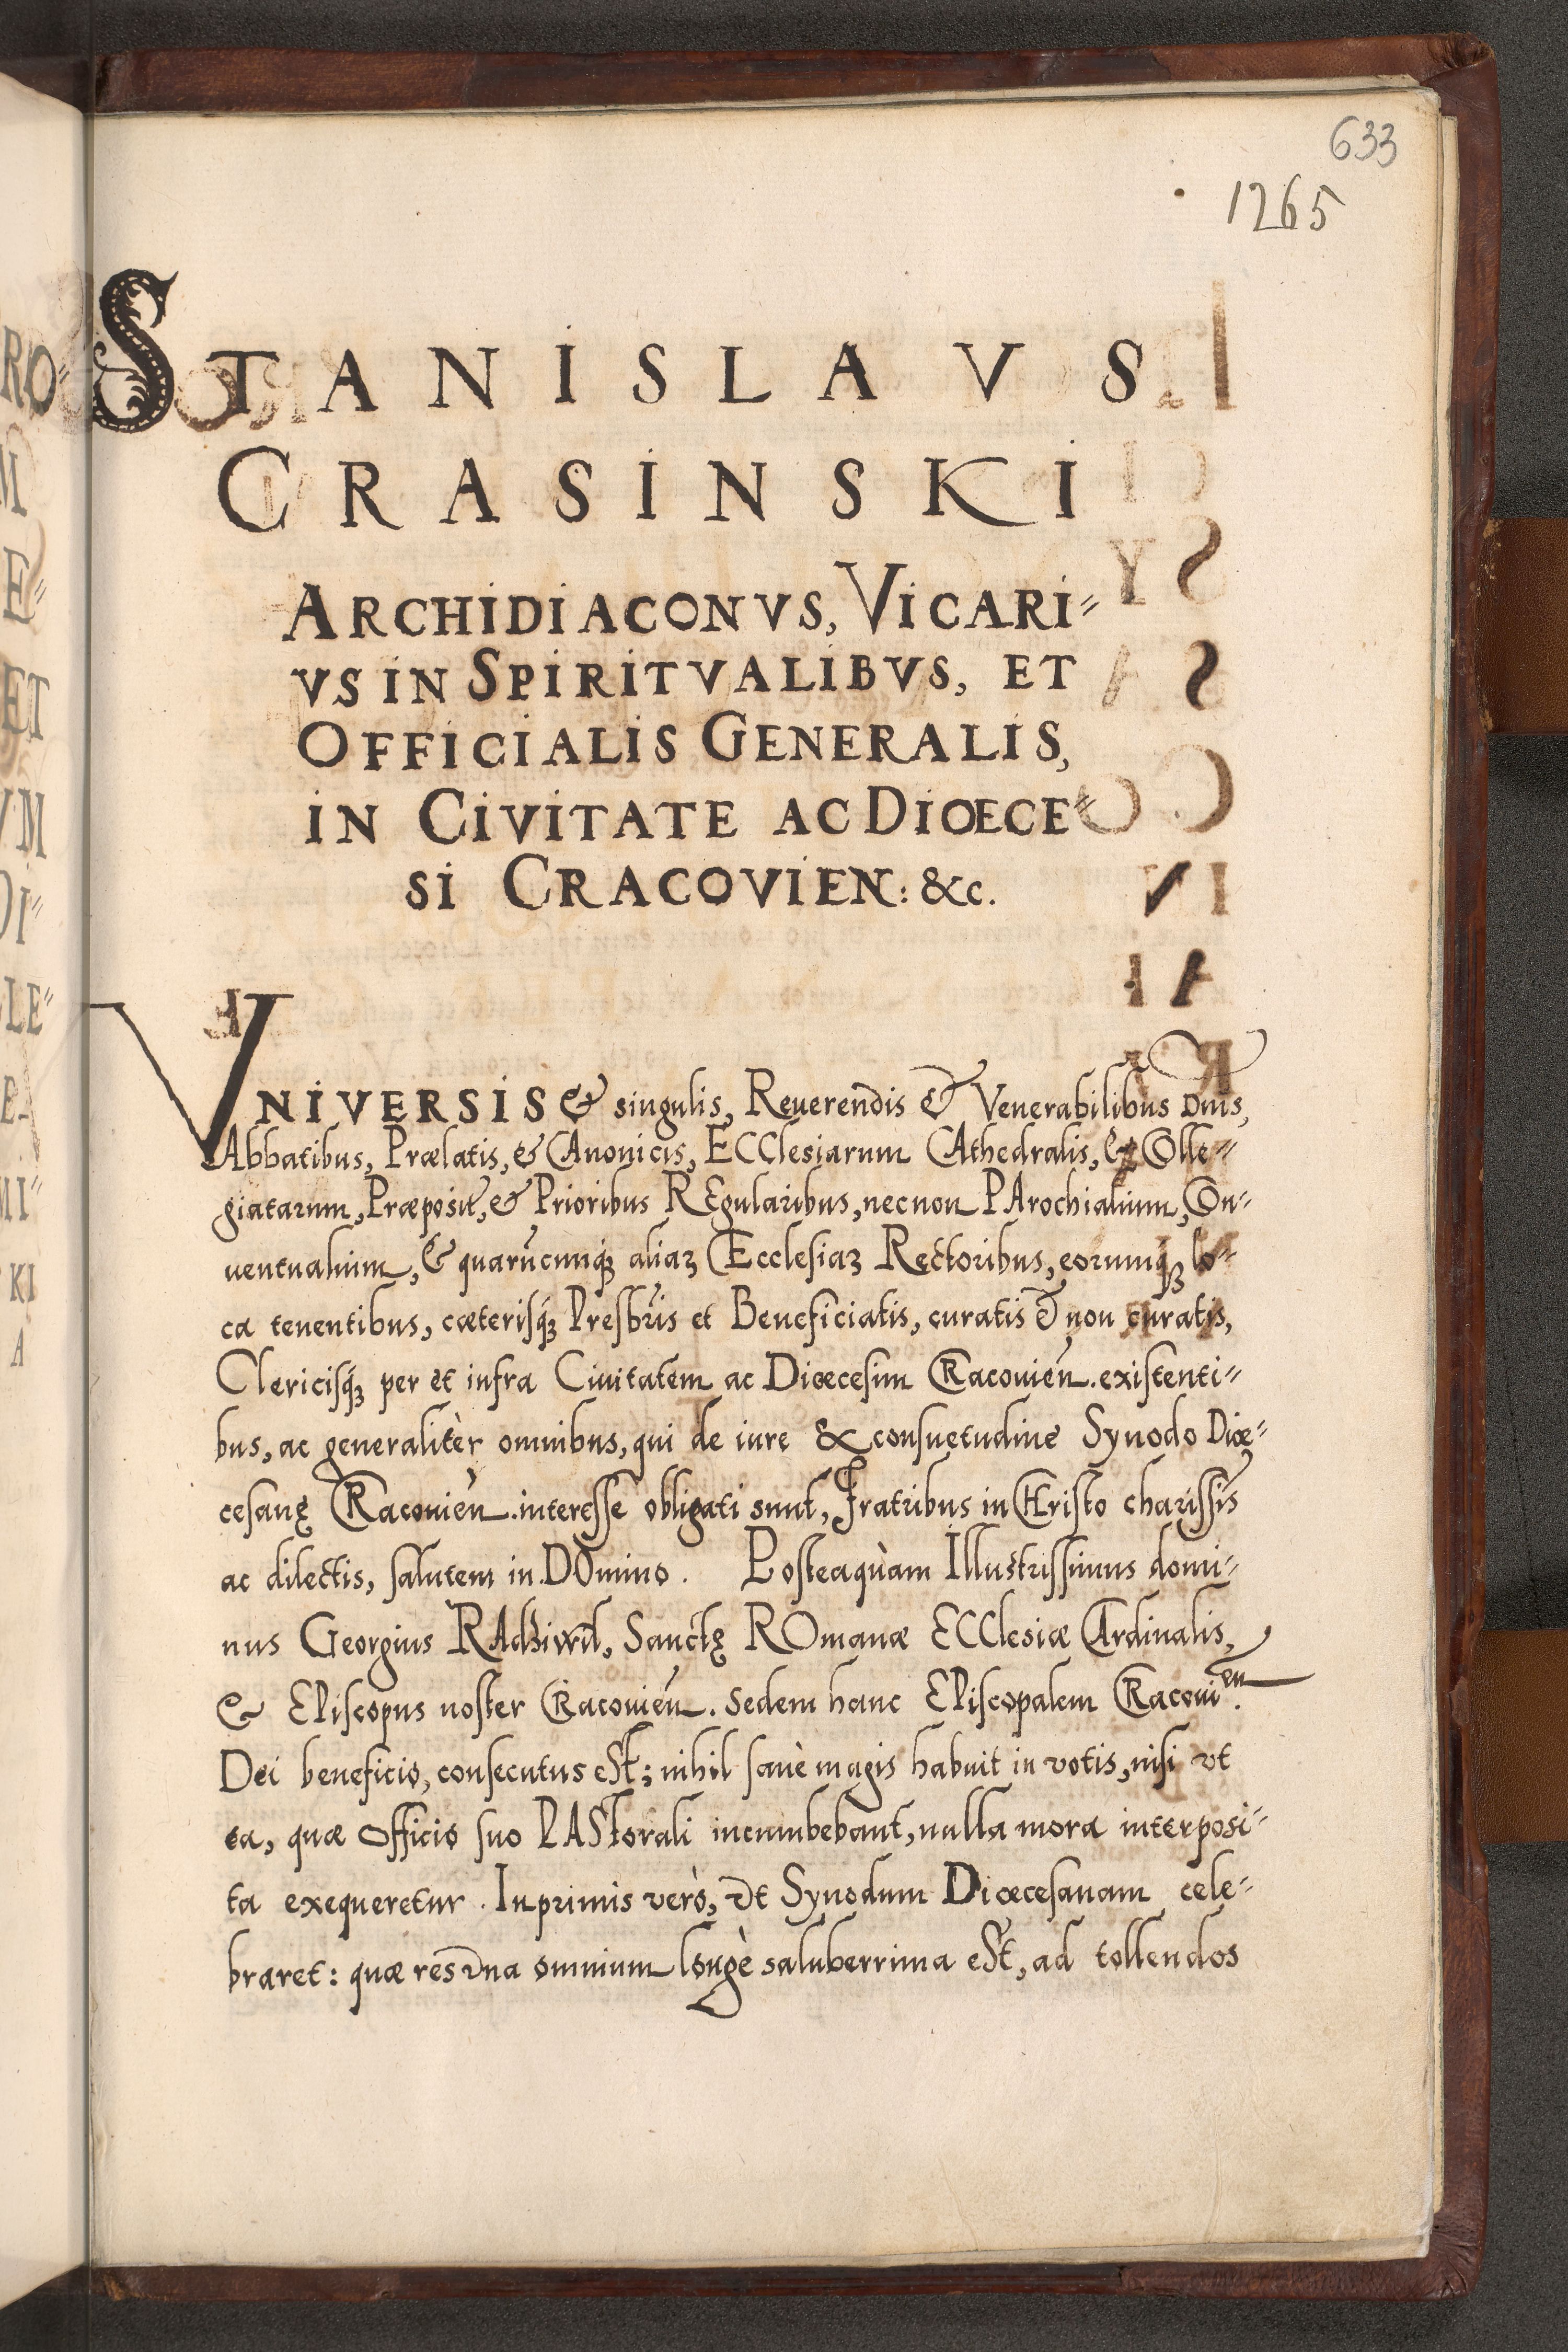 633
1265
STANISLAVS
CRASINSKI
ARCHIDIACONVS, VICARI=
VS IN SPIRITVALIBVS, ET
OFFICIALIS GENERALIS,
IN CIVITATE AC DIOECE=
SI CRACOVIEN: &c.
VNIVERSIS & singulis, Reuerendis & Venerabilibus Dnis,
Abbatibus, Prælatis, & CAnonicis, ECClesiarum CAthedralis, & COlle=
giatarum, Præposit̃, & Prioribus REgularibus, necnon PArochialium, COn=
uentualium, & quarũcunqꝫ aliaꝝ Ecclesiaꝝ Rectoribus, eorumqꝫ lo=
ca tenentibus, cæterisqꝫ Presbr̃is et Beneficiatis, curatis & non curatis,
Clericisqꝫ per et infra Ciuitatem ac Diœcesim CRacouien̄. existenti=
bus, ac generalitèr omnibus, qui de iure & consuetudine Synodo Diœ=
cesanę CRacouien̄. interesse obligati sunt, Fratribus in CHristo charissĩs
ac dilectis, salutem in DOmino. Posteaquàm Illustrissimus domi=
nus Georgius RAdziwil, Sanctę ROmanæ ECClesiæ CArdinalis,
& EPiscopus noster CRacouien̄. Sedem hanc EPiscopalem CRacoui^en.
Dei beneficio, consecutus eST; nihil sanè magis habuit in votis, nisi vt
ea, quæ officio suo PASTorali incumbebant, nulla mora interposi=
ta exequeretur. Inprimis verò, vt Synodum Diœcesanam cele=
braret: quæ res vna omnium longè saluberrima eST, ad tollendos